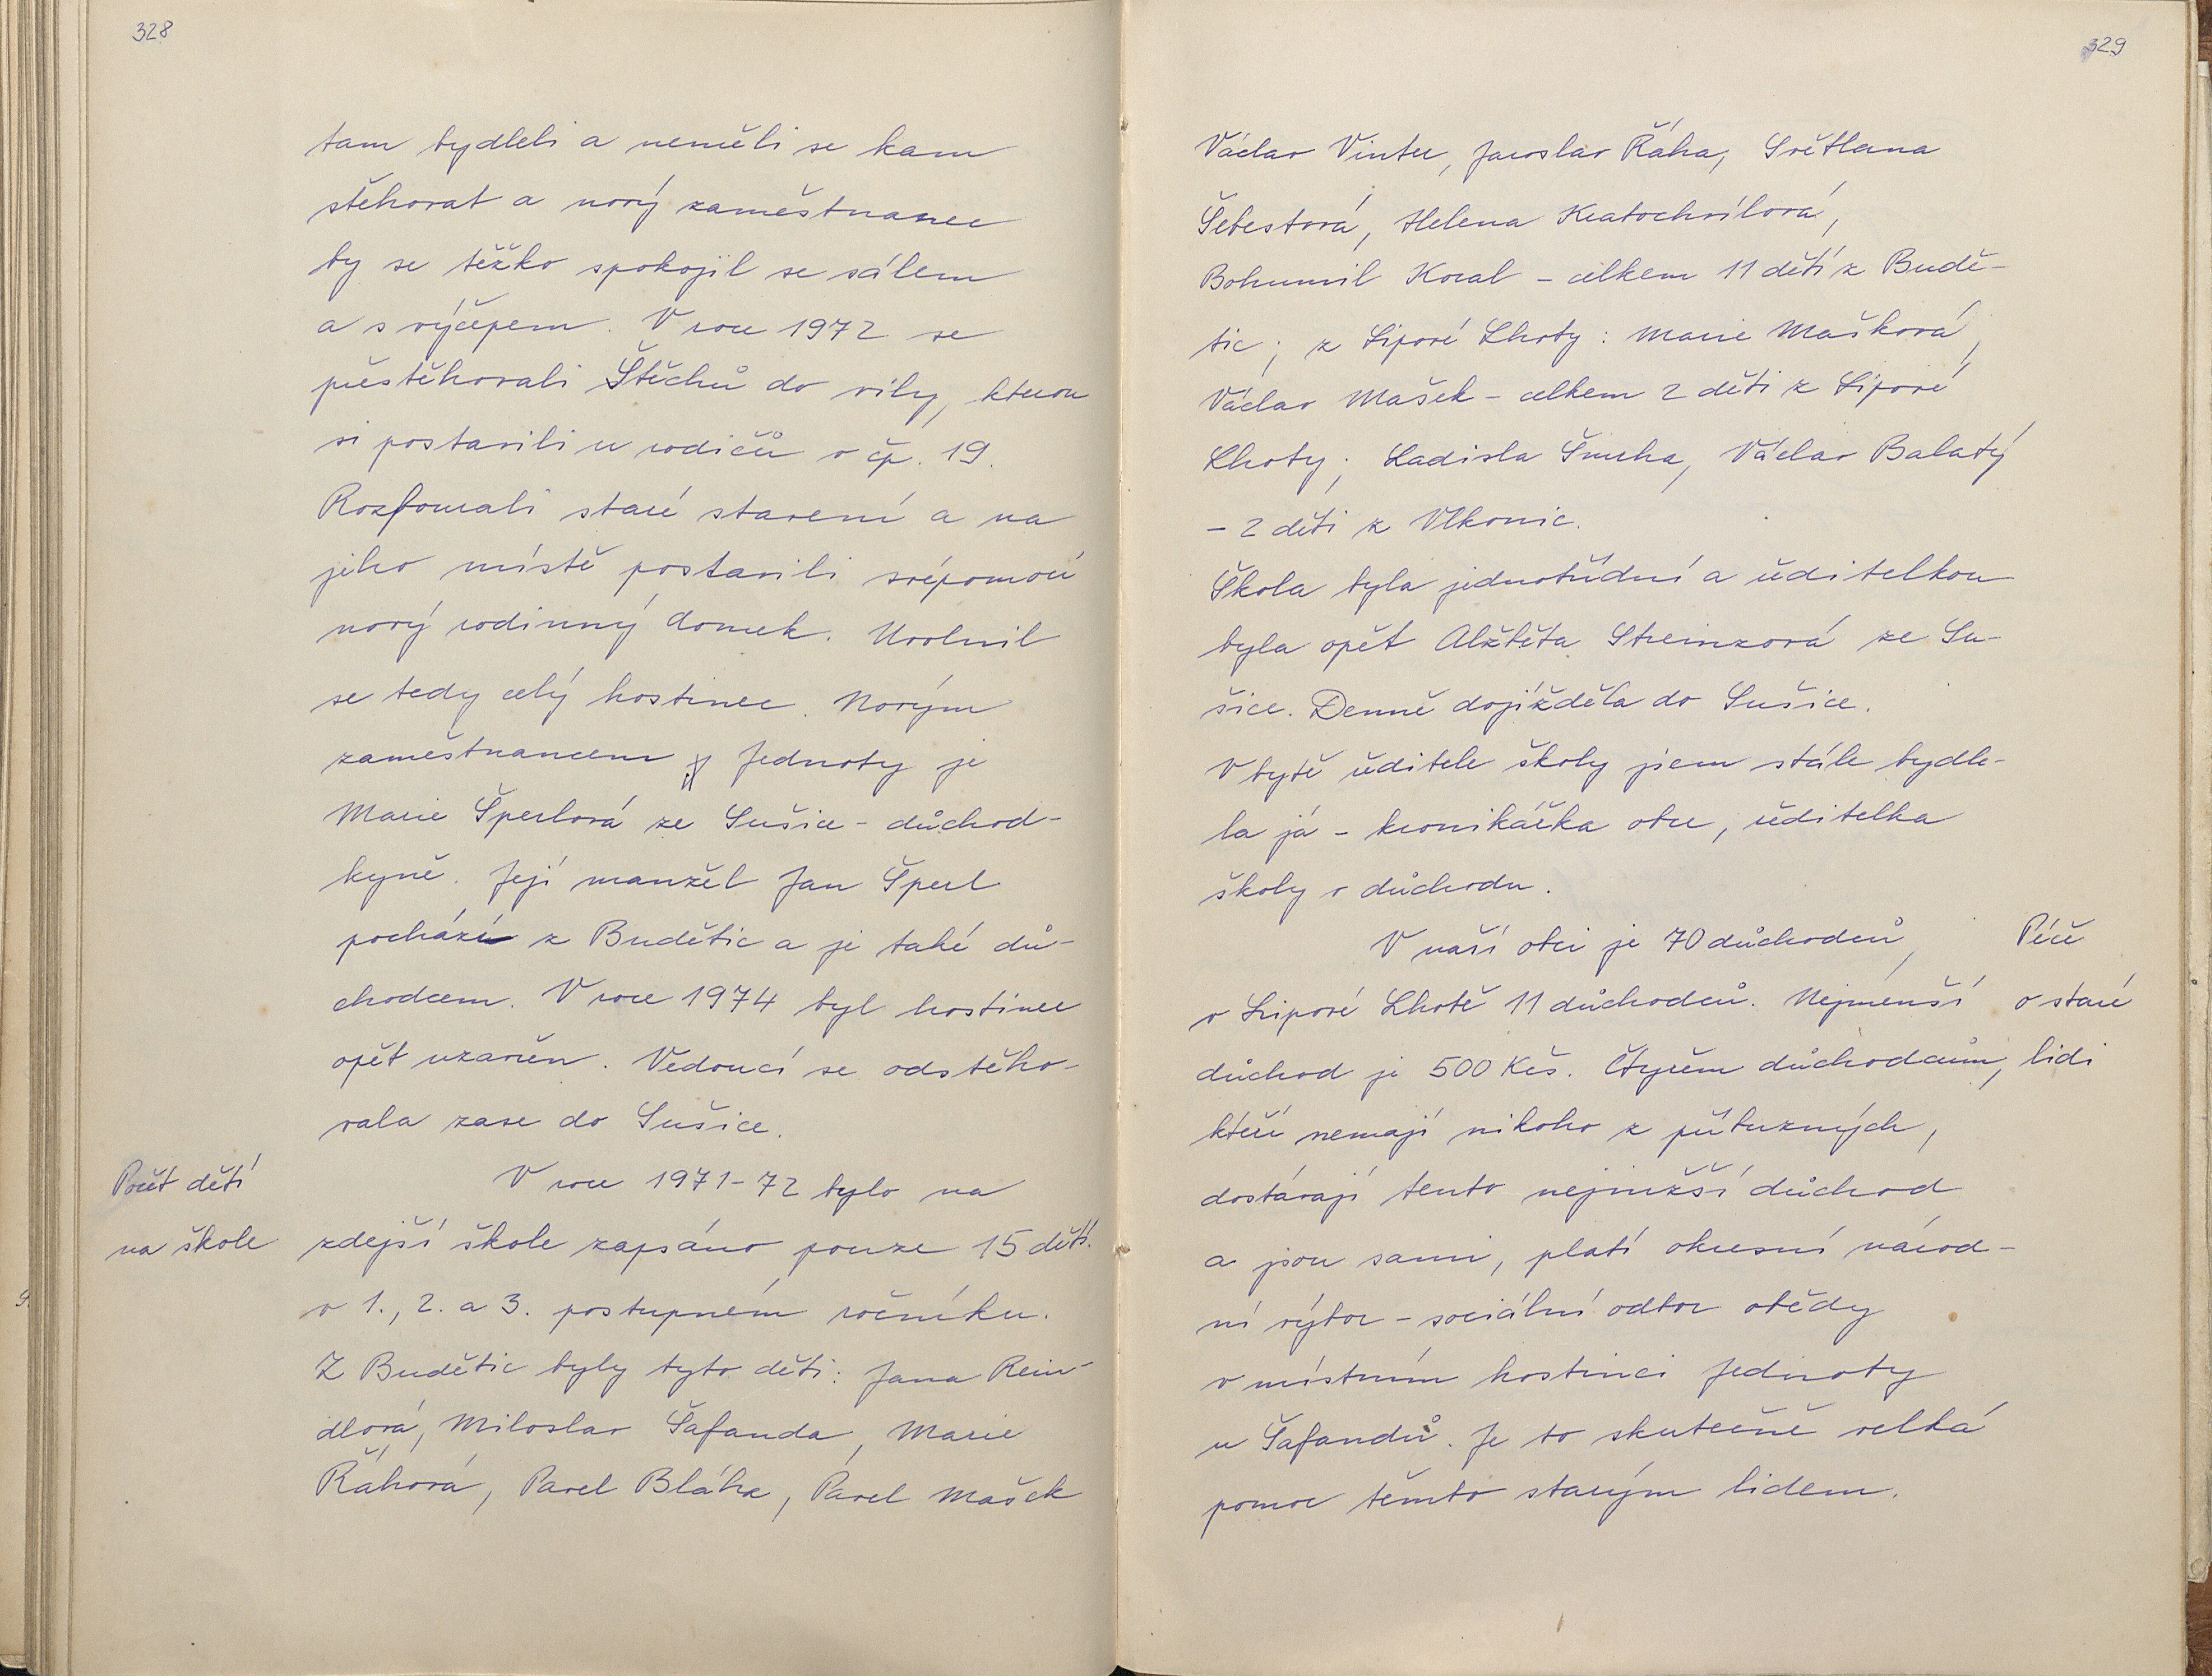 328
tam bydleli a neměli se kam
stěhovat a nový zaměstnanec
by se těžko spokojil se sálem
a s výčepem. V roce 1972 se
přestěhovali Štěchů do vily, kterou
si postavili u rodičů v čp. 19.
Rozbourali staré stavení a na
jeho místě postavili svépomocí
nový rodinný domek. Uvolnil
se tedy celý hostinec. Novým
zaměstnancem Jednoty je
Marie Šperlová ze Sušice - důchod-
kyně. Její manžel Jan Šperl
pochází z Budětic a je také dů-
chodcem. V roce 1974 byl hostinec
opět uzavřen. Vedoucí se odstěho-
vala zase do Sušice.
Počet dětí
na škole
V roce 1971-72 bylo na
zdejší škole zapsáno pouze 15 dětí.
v 1., 2. a 3. postupném ročníku.
Z Budětic byly tyto děti: Jana Rein-
dlová, Miloslav Šafanda, Marie
Řáhová, Pavel Bláha, Pavel Mašek
329
Václav Vinter, Jaroslav Řáha, Světlana
Šebestová, Helena Kratochvílová,
Bohumil Koval - celkem 11 dětí z Budě-
tic; z Lipové Lhoty: Marie Mašková,
Václav Mašek - celkem 2 děti z Lipové
Lhoty; Ladisla Šmrha, Václav Balatý
- 2 děti z Vlkonic.
Škola byla jednotřídní a ředitelkou
byla opět Alžběta Streinzová ze Su-
šice. Denně dojížděla do Sušice.
V bytě ředitele školy jsem stále bydle-
la já - kronikářka obce, ředitelka
školy v důchodu.
V naší obci je 70 důchodců,
v Lipové Lhotě 11 důchodců. Nejmenší
důchod je 500 Kčs. Čtyřem důchodcům,
kteří nemají nikoho z příbuzných,
dostávají tento nejnižší důchod
a jsou sami, platí okresní národ-
ní výbor - sociální odbor obědy
v místním hostinci Jednoty
u Šafandů. Je to skutečně velká
pomoc těmto starým lidem.
Péče
o staré
lidi